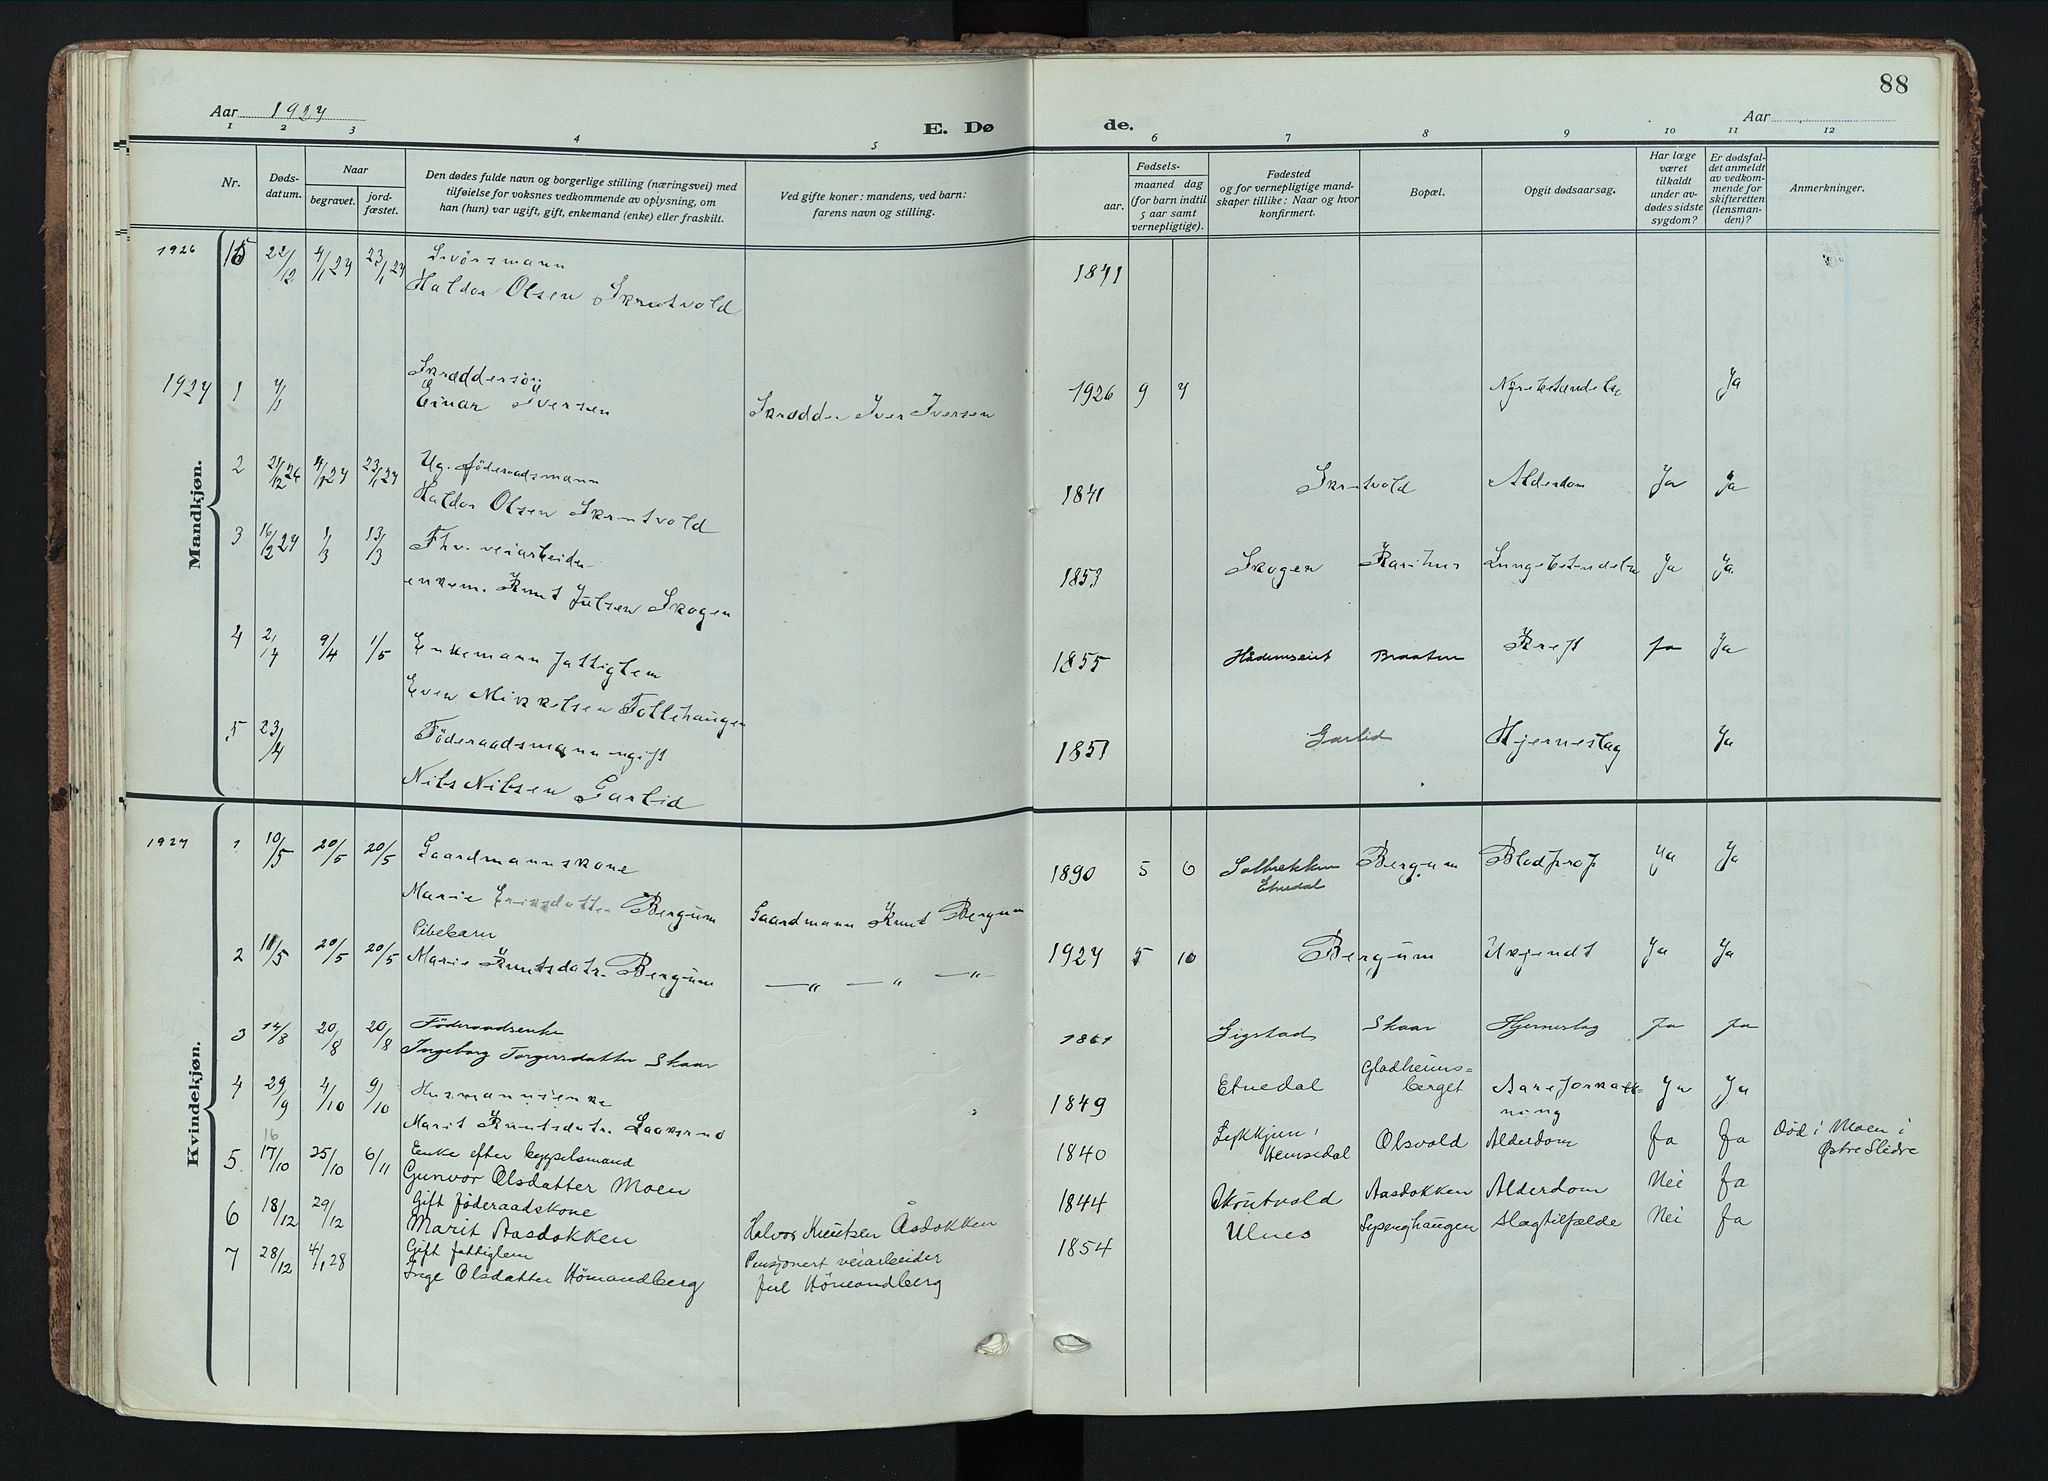 88
Aar 1927
E. Dø
de.
Aar
1 2 3 4 5 6 7 8 9 10 11 12
Nr.
Døds-
datum.
Naar
begravet.
jord-
fæstet.
Den dødes fulde navn og borgerlige stilling (næringsvei) med
tilføielse for voksnes vedkommende av oplysning, om
han (hun) var ugift, gift, enkemand (enke) eller fraskilt.
Ved gifte koner: mandens, ved barn:
farens navn og stilling.
Fødsels-
aar.
maaned dag
(for barn indtil
5 aar samt
vernepligtige).
Fødested
og for vernepligtige mand-
skaper tillike: Naar og hvor
konfirmert.
Bopæl.
Opgit dødsaarsag.
Har læge
været
tilkaldt
under av-
dødes sidste
sygdom?
Er dødsfal-
det anmeldt
av vedkom-
mende for
skifteretten
(lensman-
den)?
Anmerkninger.
Mandkjøn.
1926 15 22/12 4/1 27 23/1 27
Haldor Olsen Skrutvold 1841
1927 1 7/1 Skræddersøn
Einar Iversen Skrædder Iver Iversen 1926 9 7 Ja
2 4/1 27 23/1 27 Ug. föderaadsmann
Haldor Olsen Skrutvold 1841 Skrutvold Alderdom Ja Ja
3 16/2 27 1/3 13/3 Fhv. veiarbeider
enkem. Knut Julsen Skogen 1853 Skogen Karihus Lungebetendelse Ja Ja
4 9/4 1/5 Enkemann fattiglem
Even Mikkelsen Follehaugen 1855 Braaten Kreft ja Ja
5 23/4 Föderaadsmann ugift
Nils Nilsen Garlid 1851 Garlid Hjerneslag Ja
Kvindekjøn.
1927 1 10/5 20/5 20/5 Gaardmannskone
Marie Eriksdatter Bergum Gaardmann Knut Bergum 1890 5 6 Solbrekken
Etnedal Bergum Blodprop Ja Ja
Pibebarn
2 11/5 20/5 20/5 Marie Knutsdatr. Bergum —"— —"— —"— 1927 5 10 Bergum Ukjendt Ja Ja
3 14/8 20/8 20/8 Föderaadsenke
Ingeborg Torgersdatter Skaar 1861 Gigstad Skaar Hjerneslag ja ja
4 29/9 4/10 9/10 Husmannsenke
Marit Knutsdatr. 1849 Etnedal Gladheims-
berget Aareforkalk-
ning Ja Ja
5 16
17/10 25/10 6/11 Enke efter bygselsmand
Gunvor Olsdatter Moen 1840 Lykkjun i
Hemsedal Olsvold Alderdom Ja Ja Död i Moen i
Østre Slidre
6 18/12 29/12 Gift föderaadskone
Marit Aasdokken Halvor Knutsen Åsdokken 1844 Skrutvold Aasdokken Alderdom Nei Ja
7 28/12 4/1 28 Gift fattiglem
Inge Olsdatter Hömandberg Pensjonert veiarbeider
Jul Hömandberg 1854 Ulnes Lysenghaugen Slagtilfælde Nei Ja